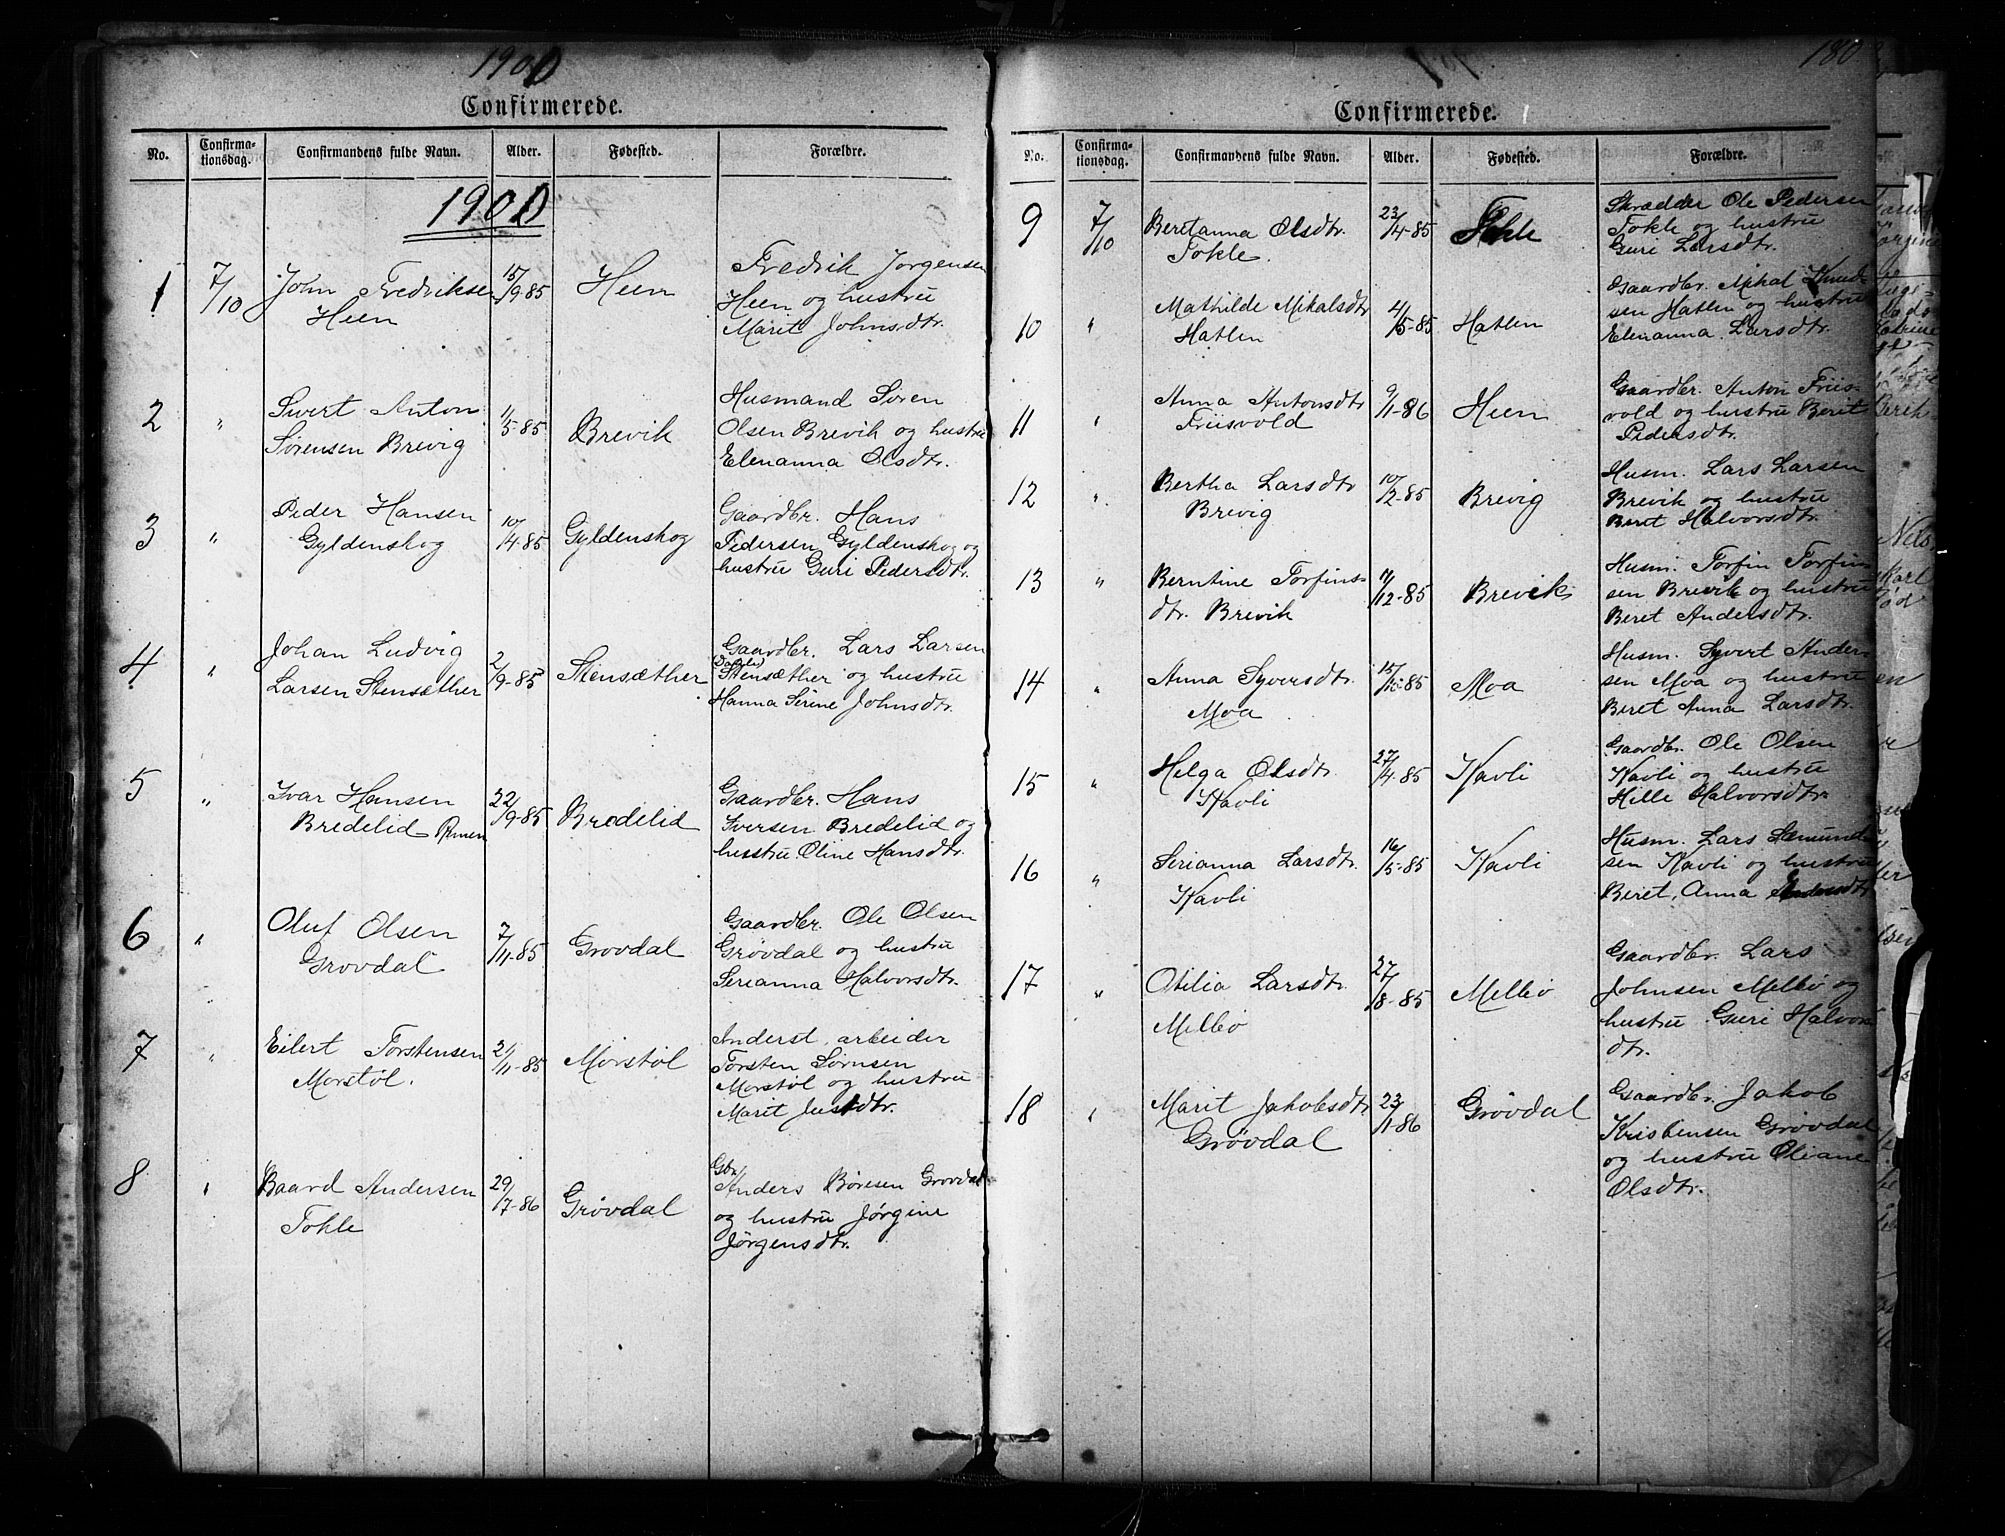 1900
Confirmerede.
No. Confirma-tionsdag. Confirmandens fulde Navn. Alder. Fødested. Forældre.
1900
1 7/10 John Fredriksen Heen 15/9-85 Heen Fredrik Jørgensen
Heen og hustru
Marit Johnsdtr.
2 " Sivert Anton 1/5-85 Brevik Husmand Søren
Sørensen Brevig Olsen Brevik og hustru
Elenanna Olsdtr.
3 " Peder Hansen 10/4-85 Gyldenskog Gaardbr. Hans
Gyldenskog Pedersen Gyldenskog og
hustru Guri Pedersdtr.
4 " Johan Ludvig 2/9-85 Stensæther Gaardbr. Lars Larsen
Larsen Stensæther Stensæther og hustru
Hanna Serine Johnsdtr.
5 " Ivar Hansen 22/9-85 Bredelid Gaardbr. Hans
Bredelid Iversen Bredelid og
hustru Oline Hansdtr.
6 " Oluf Olsen 7/11-85 Grovdal Gaardbr. Ole Olsen
Grovdal Grøvdal og hustru
Serianna Halvorsdtr.
7 " Eilert Torstensen 21/11-85 Morstøl Anderst. arbeider
Morstøl. Torsten Sørnsen
Morstøl og hustru
Marit Justdtr.
8 " Baard Andersen 29/7-86 Grøvdal Gbr.
Tokle Anders Børesen Grovdal
og hustru Jørgine
Jørgensdtr.
180
Confirmerede.
No. Confirma-tionsdag. Confirmandens fulde Navn. Alder. Fødested. Forældre.
9 7/10 Beretanna Olsdtr. 23/4-85 Tokle Skrædder Ole Pedersen
Tokle. Tokle og hustru
Guri Larsdtr.
10 " Mathilde Mikalsdtr 4/5-85 Hatlen Gaardbr. Mikal Knud-
Hatlen sen Hatlen og hustru
Elenanna Larsdtr.
11 " Anna Antonsdtr 9/11-86 Heen Gaardbr. Anton Friis-
Friisvold vold og hustru Berit
Pedersdtr.
12 " Bertha Larsdtr 10/2-85 Brevig Husm. Lars Larsen
Brevig Brevik og hustru
Beret Halvorsdtr.
13 " Berntine Torfins- 11/12-85 Brevik Husm. Torfin Torfin-
dtr. Brevik sen Brevik og hustru
Beret Andersdtr.
14 " Anna Syversdtr. 15/10-85 Moa Husm. Syvert Ander-
Moa sen Moa og hustru
Beret Anna Larsdtr.
15 " Helga Olsdtr. 27/4-85 Kavli Gaardbr. Ole Olsen
Kavli Kavli og hustru
Hille Halvorsdtr.
16 " Serianna Larsdtr. 16/5-85 Kavli Husm. Lars Sæmund-
Kavli sen Kavli og hustru
Beret, Anna Andersdtr
17 " Otilia Larsdtr 27/8-85 Mellbø Gaardbr. Lars
Mellbø Johnsen Mellbø og
hustru Guri Halvors
dtr.
18 " Marit Jakobsdtr 23/1-86 Grøvdal Gaardbr. Jakob
Grøvdal Kristensen Grøvdal
og hustru Oliane
Olsdtr.